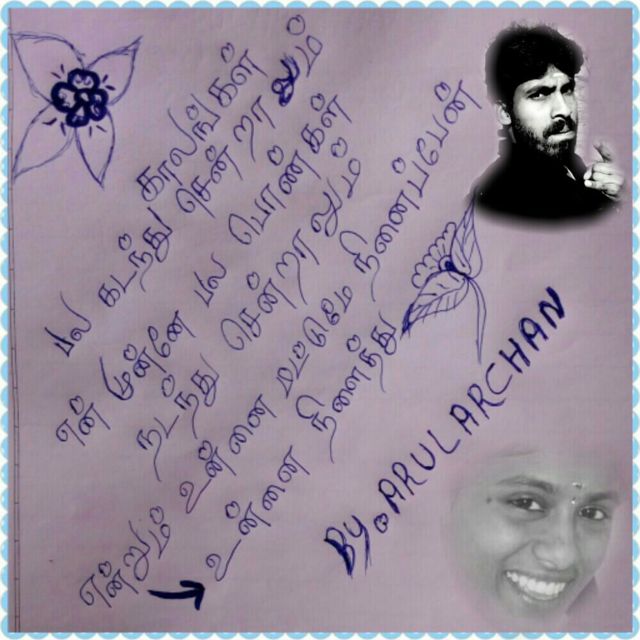 காலங்கள்
பல கடந்து சென்றாலும்
என் முன்னே பல பொண்கள்
நடந்து சென்றாலும்
என்றும் உன்னை மட்டுமே நினைப்பேன்
உன்னை நினைத்து
By. ARULARCHAN